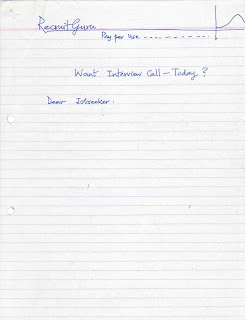 RecruitGuru
Pay per Use
Want Interview Call - Today ?
Dear Jobseeker :